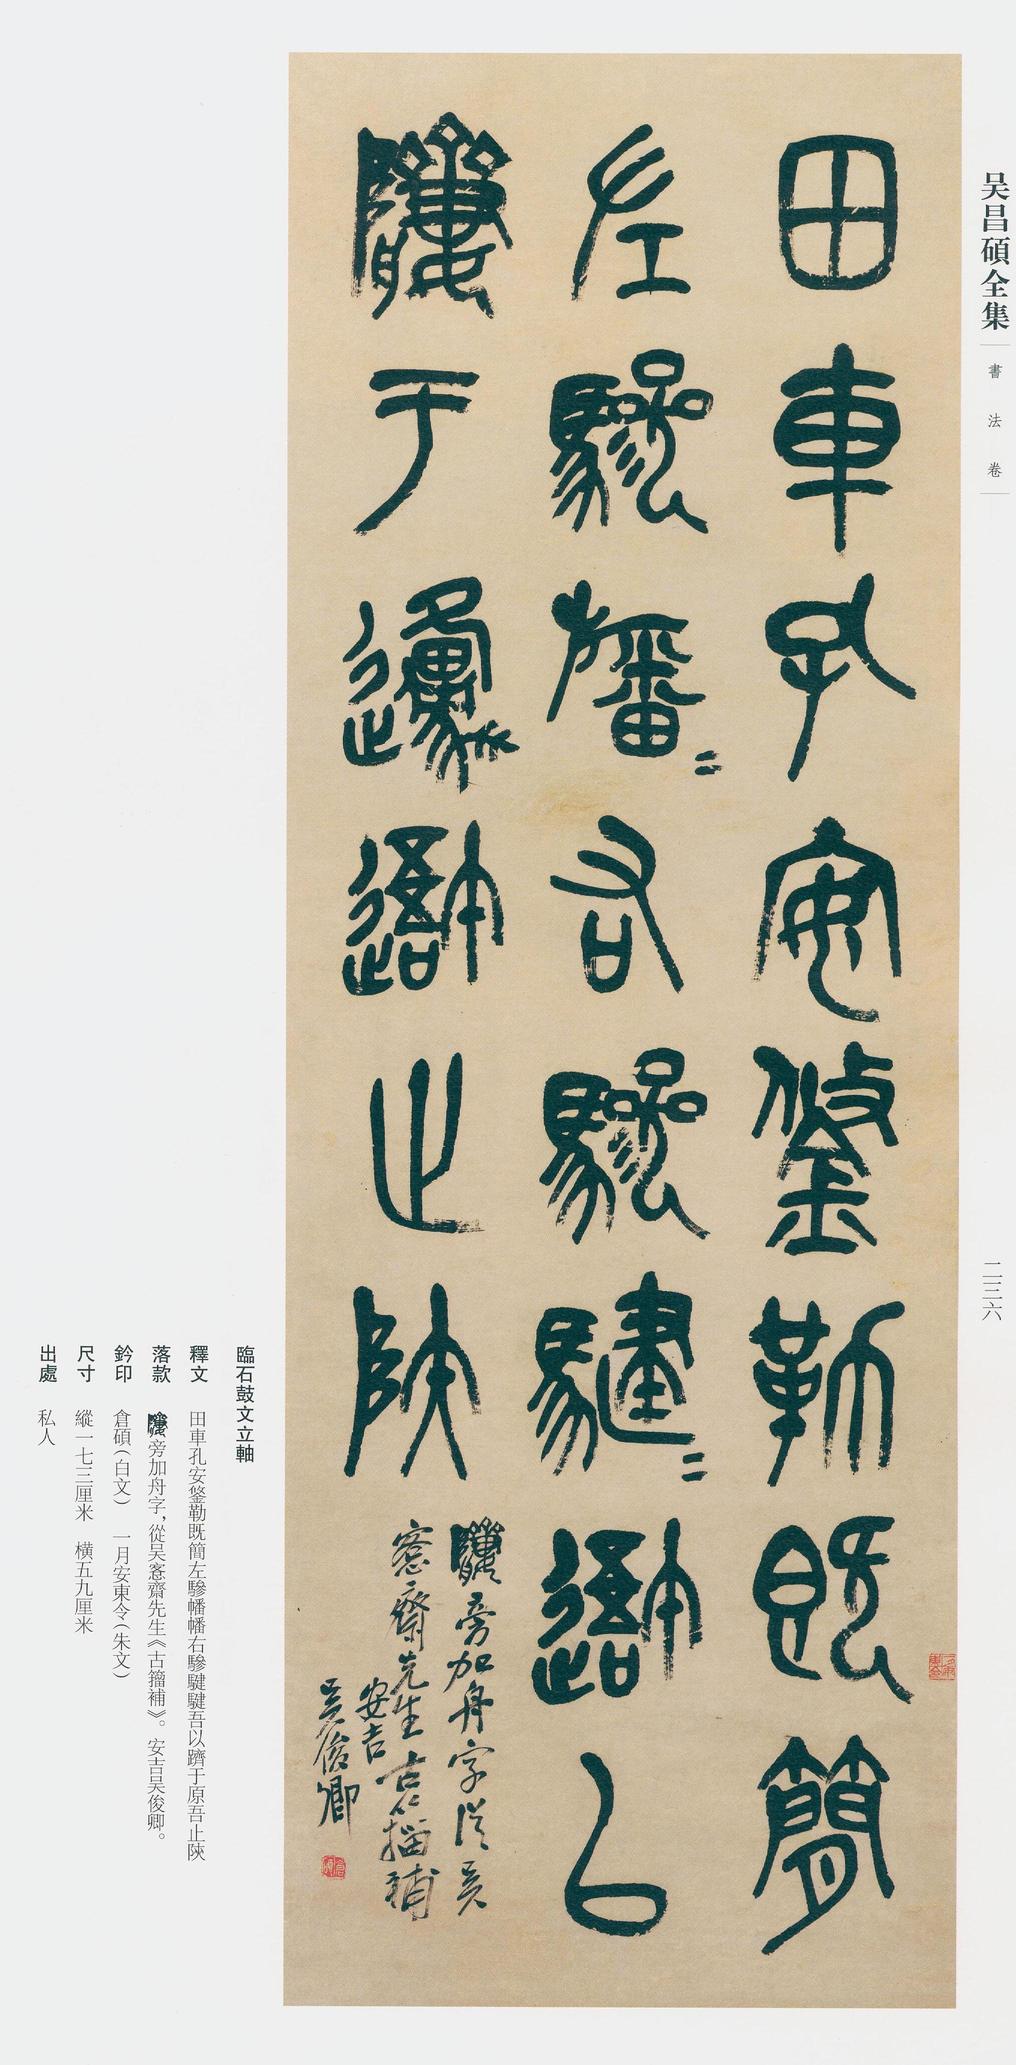 吴昌碩全集
書法卷
二三六
田車孔安鋚勒既簡
左驂旛〻右驂騝〻𨖍㠯
隮于邍𨖍止陝
旁加舟字從吴
愙齋先生古籀補
安吉
吴俊卿
臨石鼓文立軸
釋文 田車孔安鋚勒既簡左驂幡幡右驂騝騝吾以隮于原吾止陝
落款 旁加舟字，從吴愙齋先生《古籀補》。安吉吴俊卿。
鈐印 倉碩（白文） 一月安東令（朱文）
尺寸 縱一七三厘米 橫五九厘米
出處 私人